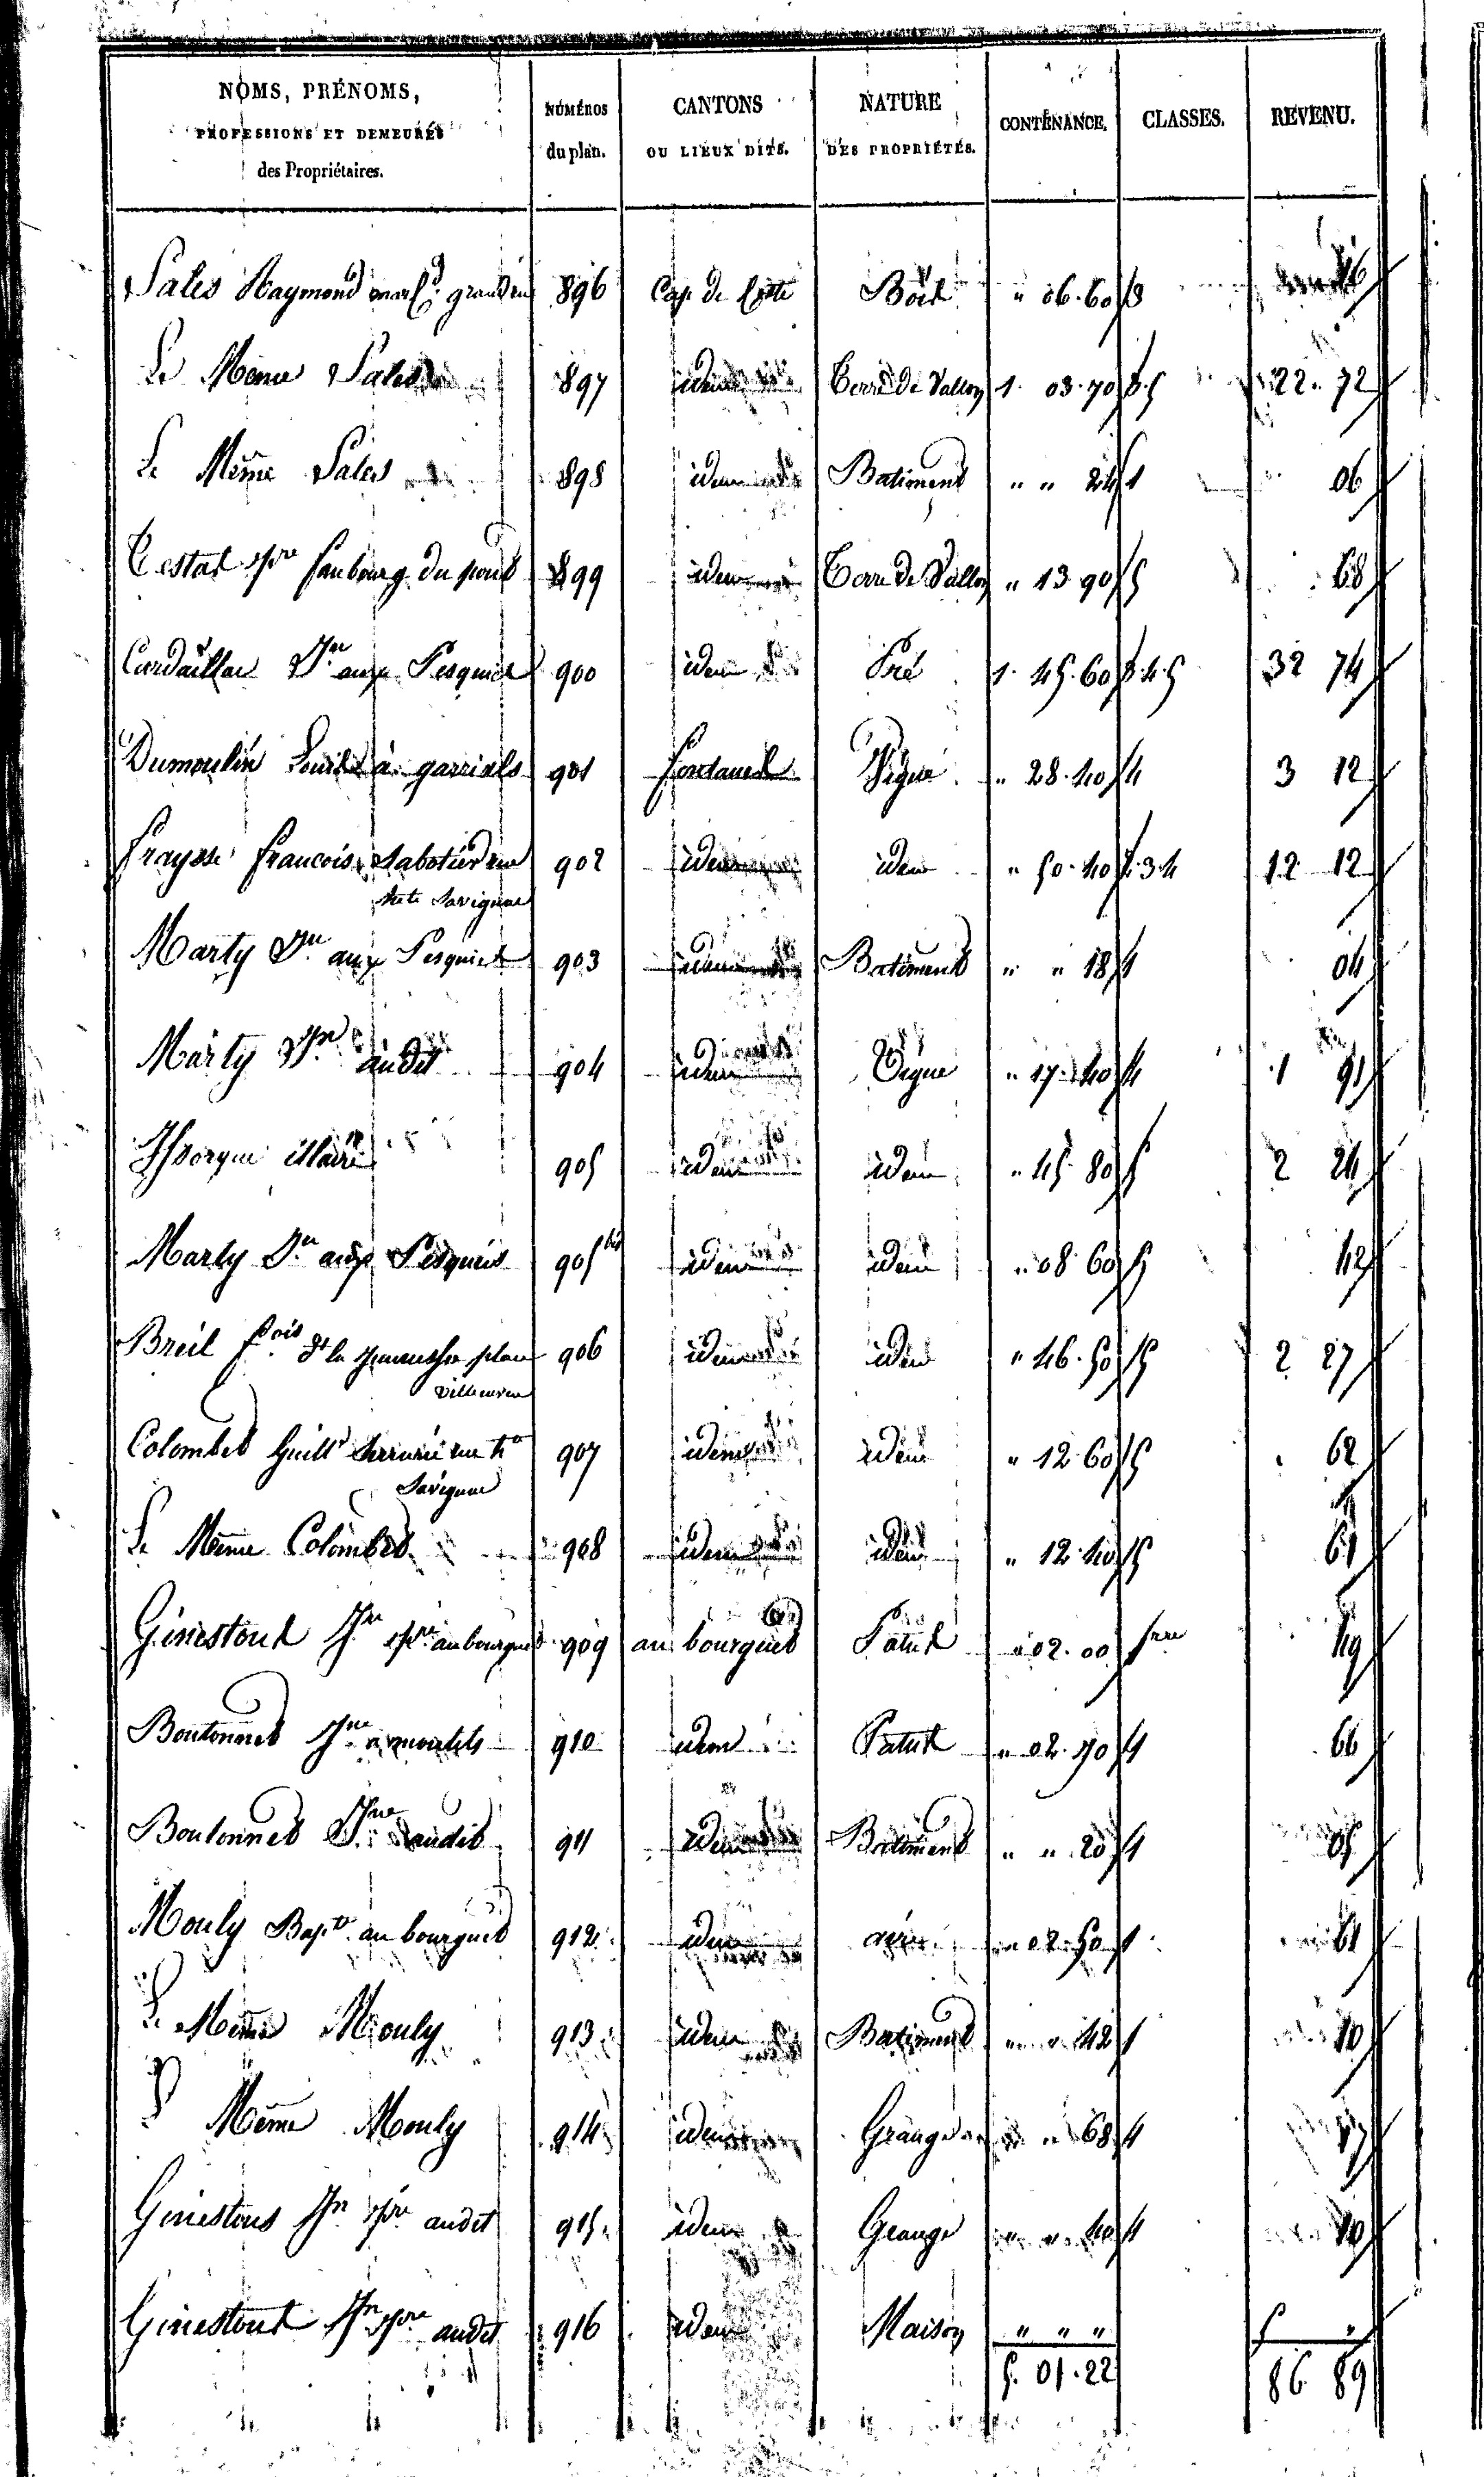 NOMS, PRÉNOMS,
PROFESSIONS ET DEMEURES
des Propriétaires.
NUMÉROS
du plan.
CANTONS
OU LIEUX DITS.
NATURE
DES PROPRIÉTÉS.
CONTENANCE.
CLASSES.
REVENU.
Sales Raymond 896 Cap de Boit " 06.60 3
Le Meme Sales 897 idem Terre de Vallon 1. 03.70 22. 72
Le Même Sales 898 idem Batiment " " 24 1 06
Testat pre faubourg du pont 899 idem Terre de Vallon " 13 90 5 68
Cardaillac Jn aux Pesquiés 900 idem Pré 1. 45.60 3.4.5 32 74
Dumoulin Louis à garrials 901 Vigne " 28.40 4 3 12
Fraysse francois Sabotier rue 902 idem idem " 50.40 2.3.4 12 12
hte Savignac
Marty Jn aux Pesquiés 903 idem Batiment " " 18 1 04
Marty Jn audit 904 idem Vigne " 17.40 4 1 91
905 idem idem " 45 80 5 2 24
Marty Jn aux Pesquiés 905 bis idem idem " 08 60 5 42
Breil fcois place 906 idem idem " 46.50 5 2 27
Colombet Guill rue hte 907 idem idem " 12 60 5 62
Savignac
Le Meme Colombet 908 idem idem " 12.40 5 61
Ginestout Jn pre au bourguet 909 au bourguet Patut " 02.00 49
Boutonnet Jn 910 idem Patut " 02.70 1 66
Boutonnet Jn audit 911 idem Batiment " " 20 1 05
Mouly Bapte au bourguet 912 idem " 02.50 1 61
Le Meme Mouly 913 idem Batiment " " 42 1 10
Même Mouly 914 idem Grange " " 68 1 17
Ginestous Jn pre audit 915 idem Grange " " 40 1 10
Ginestout Jn pre audit 916 idem Maison " " " 5 "
5. 01.22 86 89